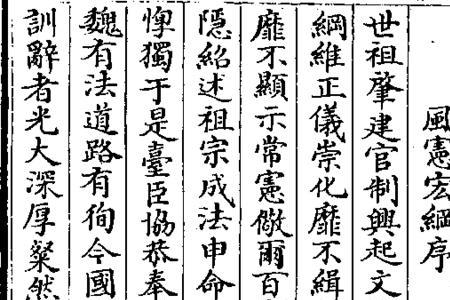 風憲宏綱序
世祖肇建官制興起文
綱維正儀崇化靡不緝
靡不顯示常憲儆爾百
隱紹述祖宗成法申命
惸獨于是臺臣協恭奉
魏有法道路有徇今國
訓辭者光大深厚粲然